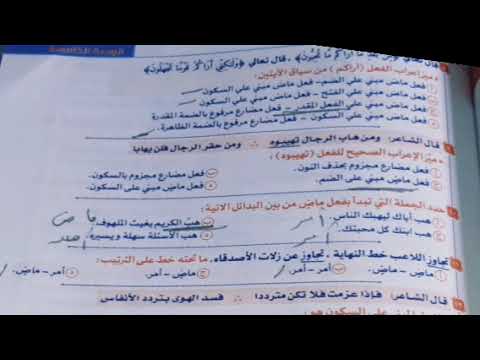 قال تعالى ﴿ من بعد ما أراكم ما تحبون ﴾ ، قال تعالى ﴿ ولكني أراكم قوما تجهلون ﴾
ميز إعراب الفعل (أراكم) من سياق الآيتين:
فعل ماضٍ مبني على الضم - فعل ماضٍ مبني على السكون
فعل ماضٍ مبني على الفتح - فعل ماضٍ مبني على السكون
فعل ماضٍ مبني على الفتح المقدر - فعل مضارع مرفوع بالضمة المقدرة
فعل ماضٍ مبني على السكون - فعل مضارع مرفوع بالضمة الظاهرة.
قال الشاعر: ومن هاب الرجال تهيبوه ∴ ومن حقر الرجال فلن يهابا
ميز الإعراب الصحيح للفعل (تهيبوه):
فعل مضارع مجزوم بحذف النون.
فعل مضارع مجزوم بالسكون.
فعل ماضٍ مبني على الضم.
فعل ماضٍ مبني على السكون.
حدد الجملة التي تبدأ بفعل ماضٍ من بين البدائل الآتية:
هب أباك ليهبك الناس.
أمر
هب الكريم بغيث الملهوف.
ماض
هب ابنك كل محبتك.
أمر
هب الأسئلة سهلة ويسيرة
تجاوز اللاعب خط النهاية ، تجاوز عن زلات الأصدقاء. ما تحته خط على الترتيب:
ماضٍ - ماضٍ.
أمر - أمر.
ماضٍ - أمر.
أمر - ماضٍ.
قال الشاعر: فإذا عزمت فلا تكن مترددا ∴ فسد الهوى بتردد الأنفاس